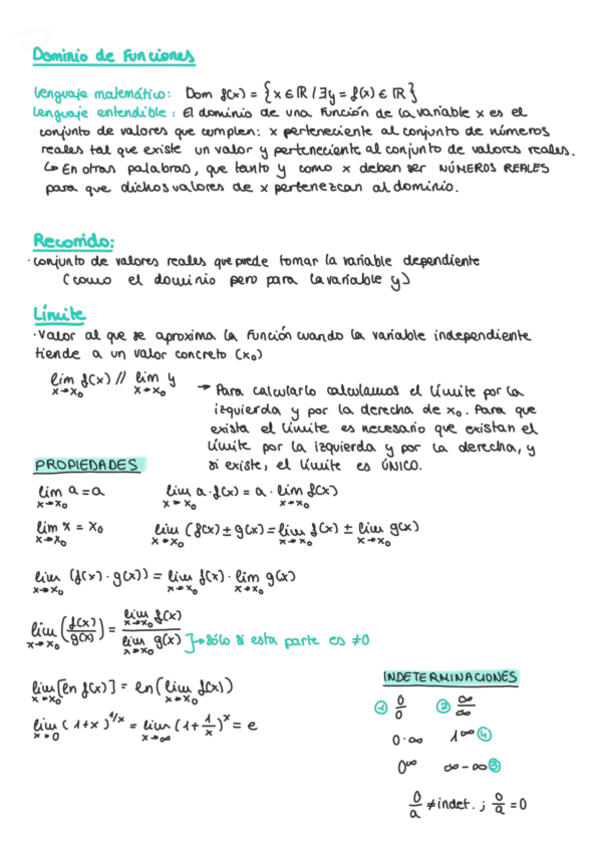 Dominio de Funciones
Lenguaje matemático: Dom f(x) = {x ∈ ℝ / ∃y = f(x) ∈ ℝ}
Lenguaje entendible: El dominio de una función de la variable x es el
conjunto de valores que cumplen: x perteneciente al conjunto de números
reales tal que existe un valor y perteneciente al conjunto de valores reales.
↳ En otras palabras, que tanto y como x deben ser NÚMEROS REALES
para que dichos valores de x pertenezcan al dominio.
Recorrido:
· conjunto de valores reales que puede tomar la variable dependiente
(como el dominio pero para la variable y)
Límite
· Valor al que se aproxima la función cuando la variable independiente
tiende a un valor concreto (x₀)
lim x→x₀ f(x) // lim x→x₀ y
→ Para calcularlo calculamos el límite por la
izquierda y por la derecha de x₀. Para que
exista el límite es necesario que existan el
límite por la izquierda y por la derecha, y
si existe, el límite es ÚNICO.
PROPIEDADES
lim x→x₀ a = a    lim x→x₀ a·f(x) = a · lim x→x₀ f(x)
lim x→x₀ x = x₀    lim x→x₀ (f(x) ± g(x)) = lim x→x₀ f(x) ± lim x→x₀ g(x)
lim x→x₀ (f(x) · g(x)) = lim x→x₀ f(x) · lim x→x₀ g(x)
lim x→x₀ (f(x)/g(x)) = lim x→x₀ f(x) / lim x→x₀ g(x) → sólo si esta parte es ≠0
lim x→x₀ [ln f(x)] = ln (lim x→x₀ f(x))
lim x→0 (1+x)^1/x = lim x→∞ (1+1/x)^x = e
INDETERMINACIONES
① 0/0    ② ∞/∞
0·∞    1^∞ ④
0^∞    ∞-∞ ③
0/a ≠ indet. ; 0/a = 0